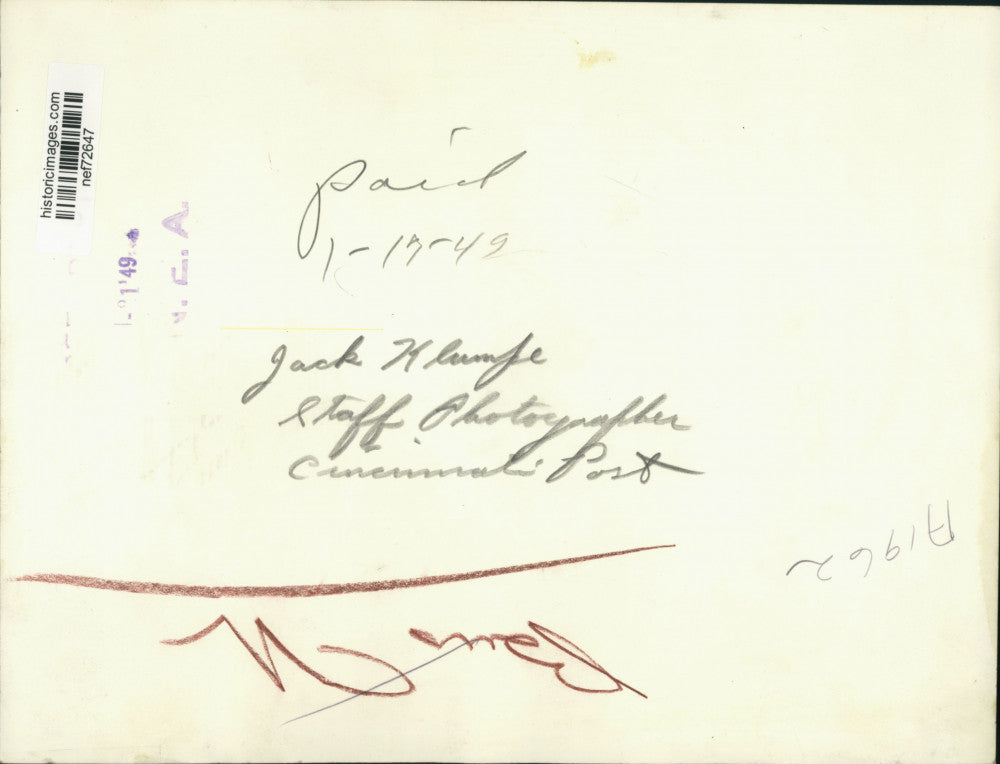 historicimages.com
nef72647
1'49
E.A.
paid
1-17-49
Jack Klumpe
Staff Photographer
Cincinnati Post
A1962